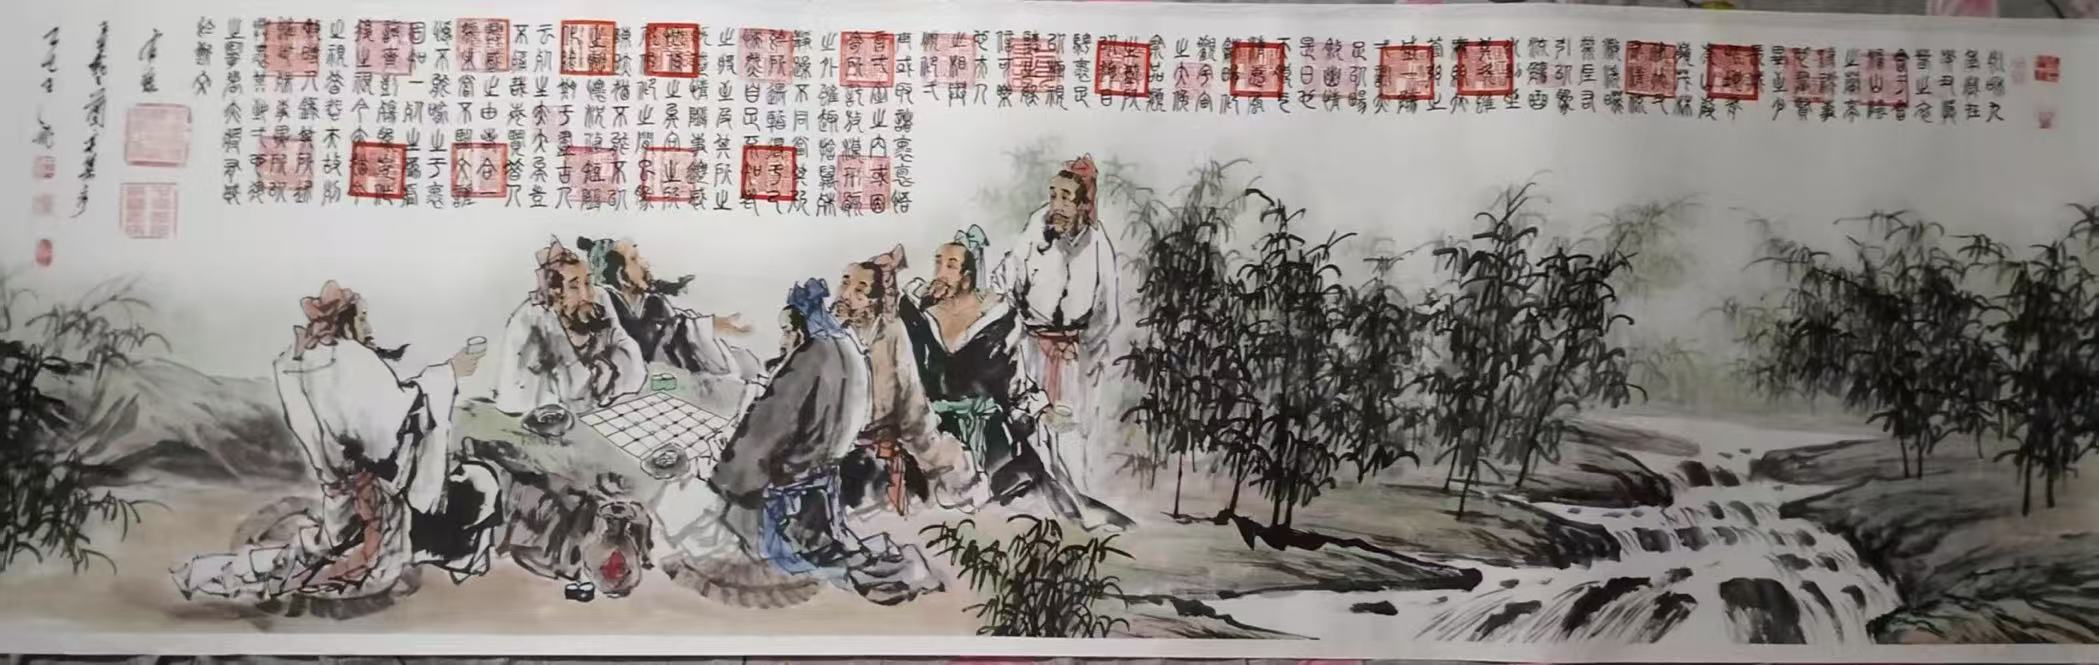 永和九
年歲在
癸丑暮
春之初
會于會
稽山陰
之蘭亭
脩禊事
也羣賢
畢至少
長咸
崇山峻
領茂林
脩竹又
有清流
激湍暎
帶左右
引以為
流觴曲
水列坐
其次雖
無絲竹
管弦之
盛一觴
一詠亦
足以暢
敘幽情
是日也
天朗氣
清惠風
和暢仰
觀宇宙
之大俯
察品類
之盛所
以遊目
騁懷足
以極視
聽之娛
信可樂
也夫人
之相與
俯仰一
世或取諸懷抱悟
言一室之內或因
寄所託放浪形骸
之外雖趣舍萬殊
靜躁不同當其欣
於所遇暫得於己
快然自足不知老
之將至及其所之
既惓情隨事遷感
慨係之矣向之所
欣俛仰之間以為
陳迹猶不能不以
之興懷況脩短隨
化終期于盡古人
云死生亦大矣豈
不痛哉每覽昔人
興感之由若合
契未嘗不臨文嗟
悼不能喻之于懷
固知一死生為虛
誕齊彭殤為妄作
後之視今亦由今
之視昔悲夫故列
敘時人錄其所述
雖世殊事異所以
興懷其致一也後
之覽者亦將有感
於斯文